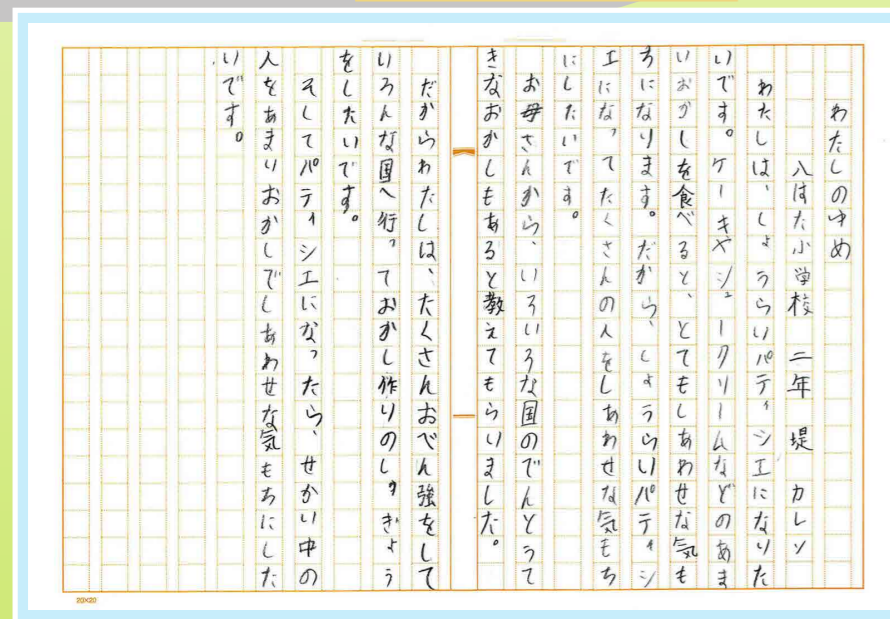 わたしのゆめ
八はた小学校 二年 堤 カレン
わたしは、しょうらいパティシエになりた
いです。ケーキやシュークリームなどのあま
いおかしを食べると、とてもしあわせな気も
ちになります。だから、しょうらいパティシ
エになってたくさんの人をしあわせな気もち
にしたいです。
お母さんから、いろいろな国のでんとうて
きなおかしもあると教えてもらいました。
だからわたしは、たくさんおべん強をして
いろんな国へ行っておかし作りのしゅぎょう
をしたいです。
そしてパティシエになったら、せかい中の
人をあまいおかしでしあわせな気もちにした
いです。
20×20